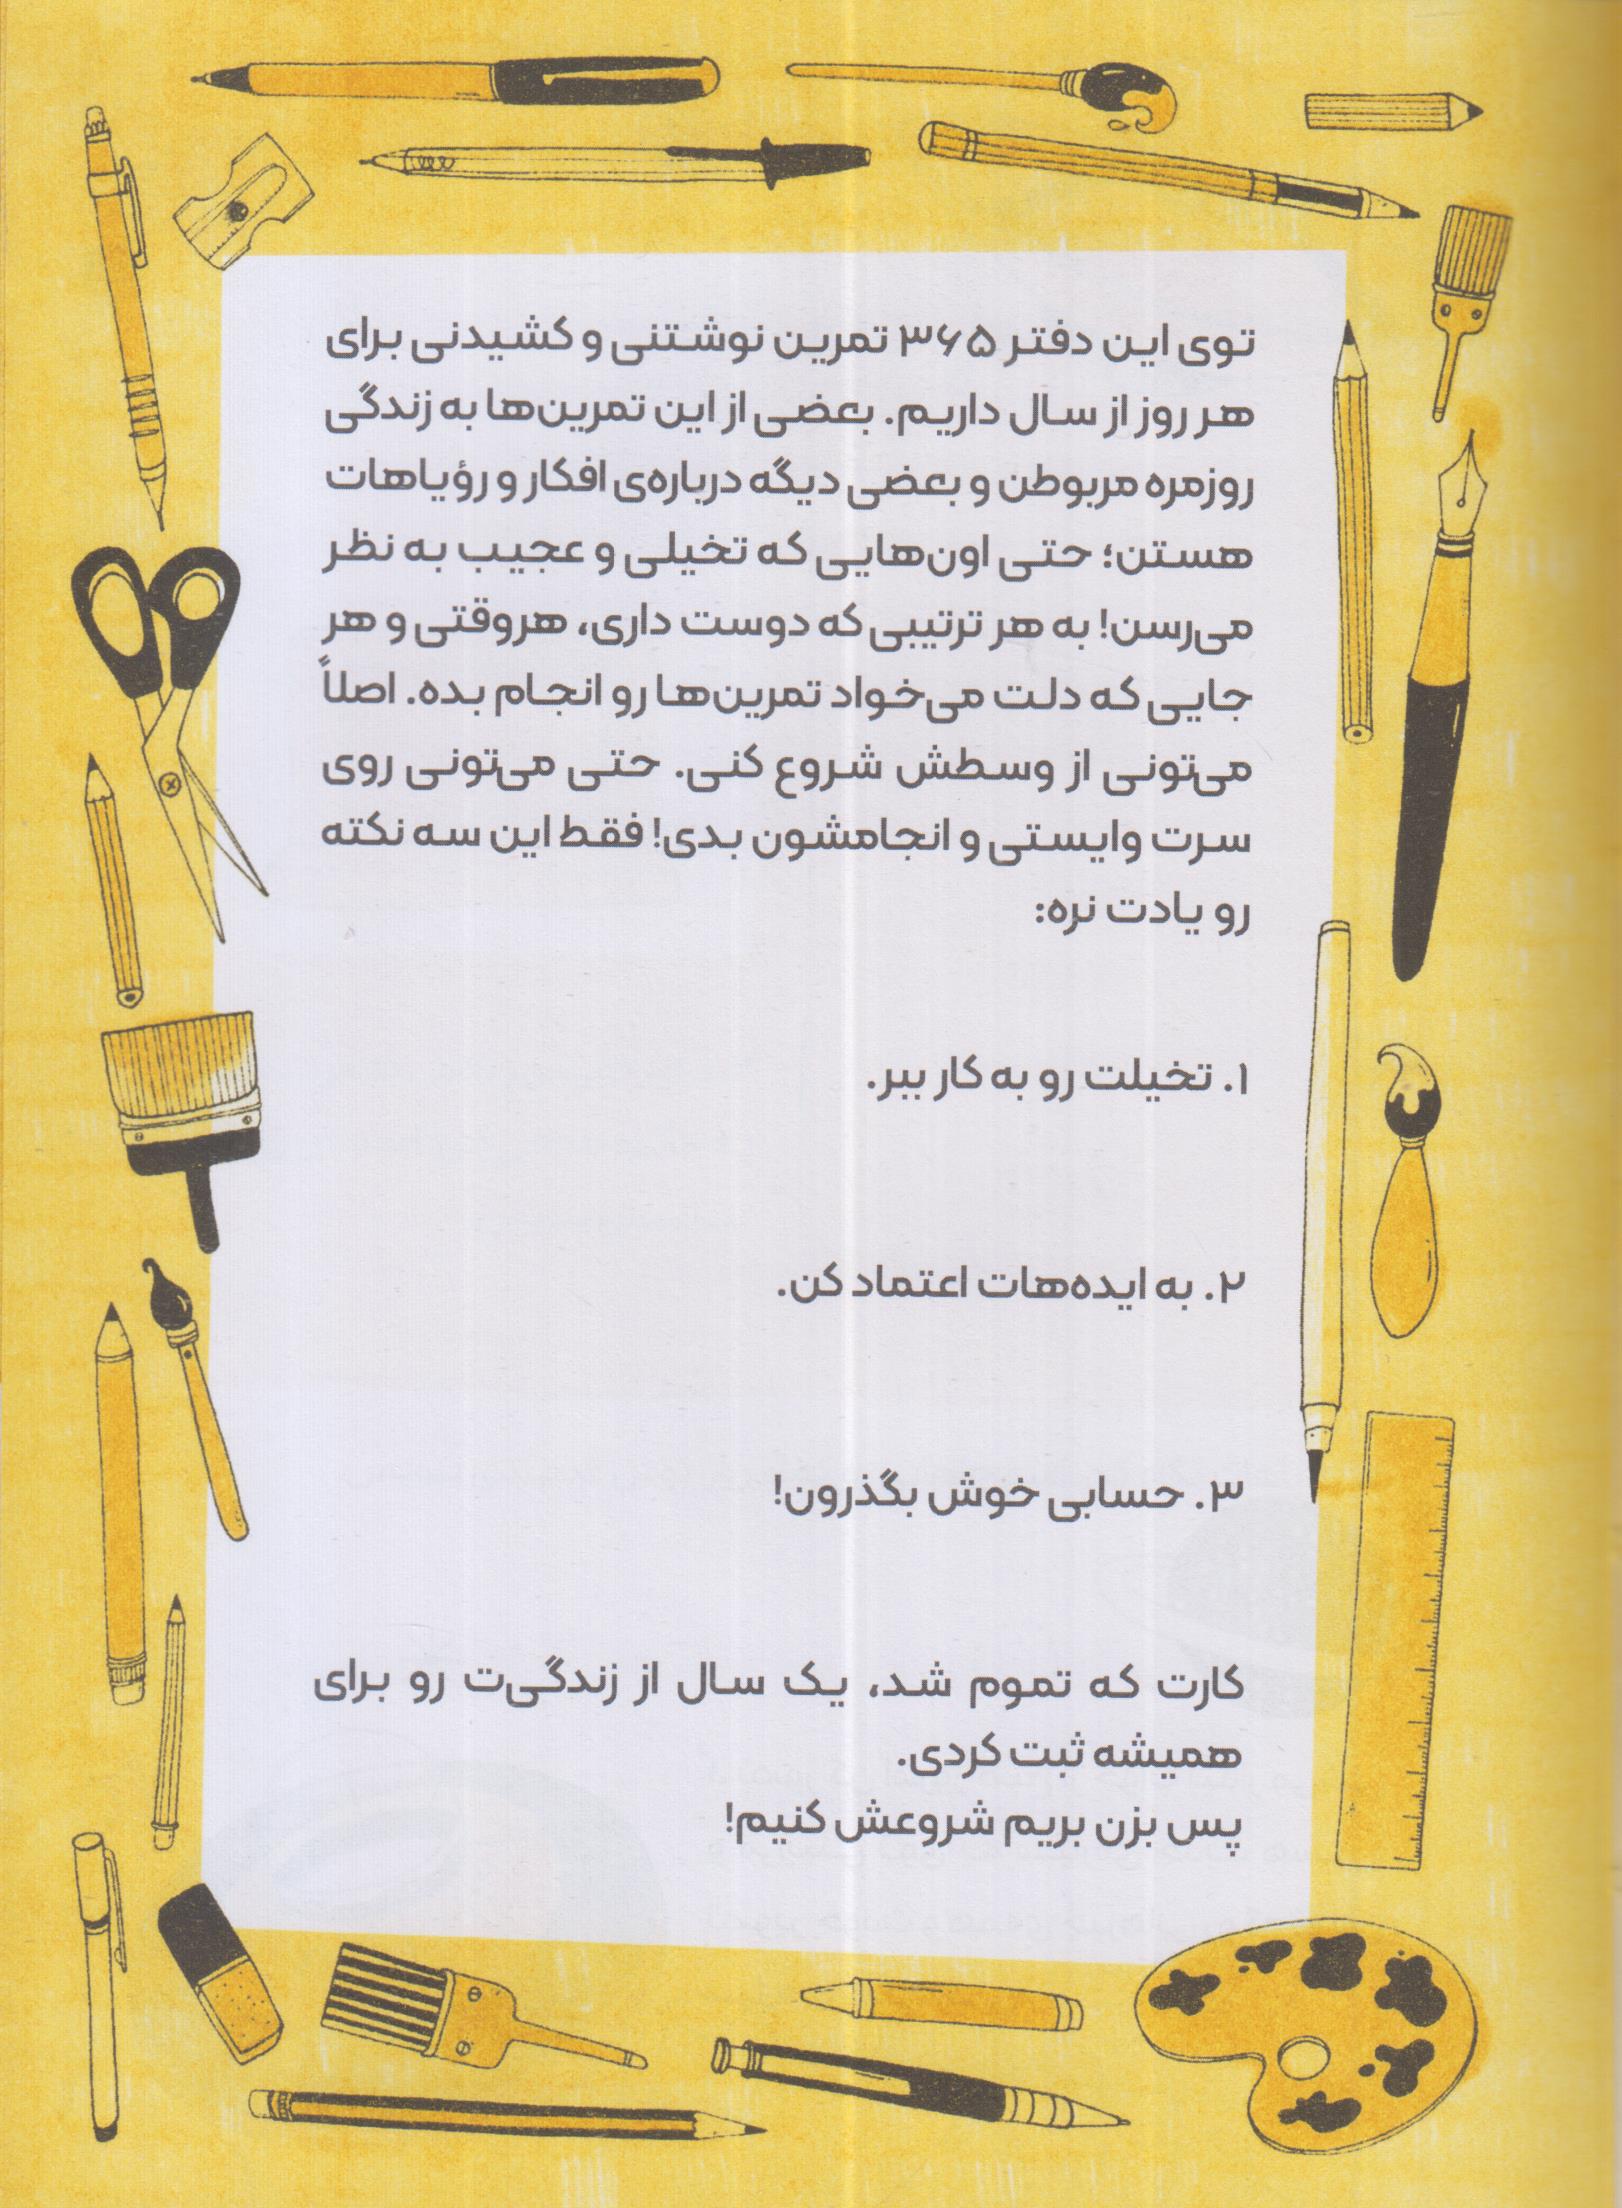 توی این دفتر ۳۶۵ تمرین نوشتنی و کشیدنی برای
هر روز از سال داریم. بعضی از این تمرین‌ها به زندگی
روزمره مربوطن و بعضی دیگه درباره‌ی افکار و رؤیاهات
هستن؛ حتی اون‌هایی که تخیلی و عجیب به نظر
می‌رسن! به هر ترتیبی که دوست داری، هروقتی و هر
جایی که دلت می‌خواد تمرین‌ها رو انجام بده. اصلاً
می‌تونی از وسطش شروع کنی. حتی می‌تونی روی
سرت وایستی و انجامشون بدی! فقط این سه نکته
رو یادت نره:
۱. تخیلت رو به کار ببر.
۲. به ایده‌هات اعتماد کن.
۳. حسابی خوش بگذرون!
کارت که تموم شد، یک سال از زندگی‌ت رو برای
همیشه ثبت کردی.
پس بزن بریم شروعش کنیم!